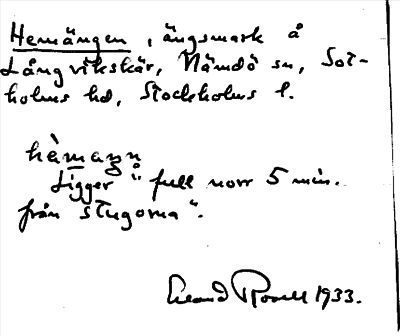 Hemängen, ängsmark å
Långvikskär, Nämdö sn, Sot-
holms hd, Stockholms l.
hèmaŋŋ
Ligger "i full norr 5 min.
från stugorna".
Erland Rosell 1933.